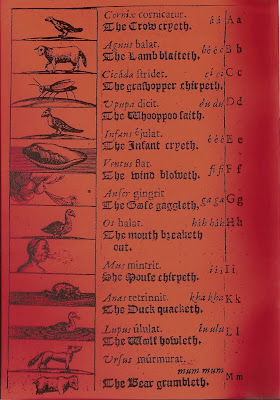 Cornix cornicatur. á á A a
The Crow cryeth.
Agnus balat. bé é é B b
The Lamb blaiteth.
Cicáda stridet. cí cí C c
The grashopper chirpeth.
Upupa dicit. du du D d
The Whooppoo saith.
Infans éjulat. é é é E e
The Infant cryeth.
Ventus flat. fi fi F f
The wind bloweth.
Anser gingrit. ga ga G g
The Gose gaggleth.
Os halat. háh háh H h
The mouth breaketh
out.
Mus mintrit. í í í I i
The Mouse chirpeth.
Anas tetrinnit. kha kha K k
The Duck quacketh.
Lupus úlulat. lu ulu L l
The Wolf howleth.
Ursus múrmurat.
mum mum M m
The Bear grumbleth.